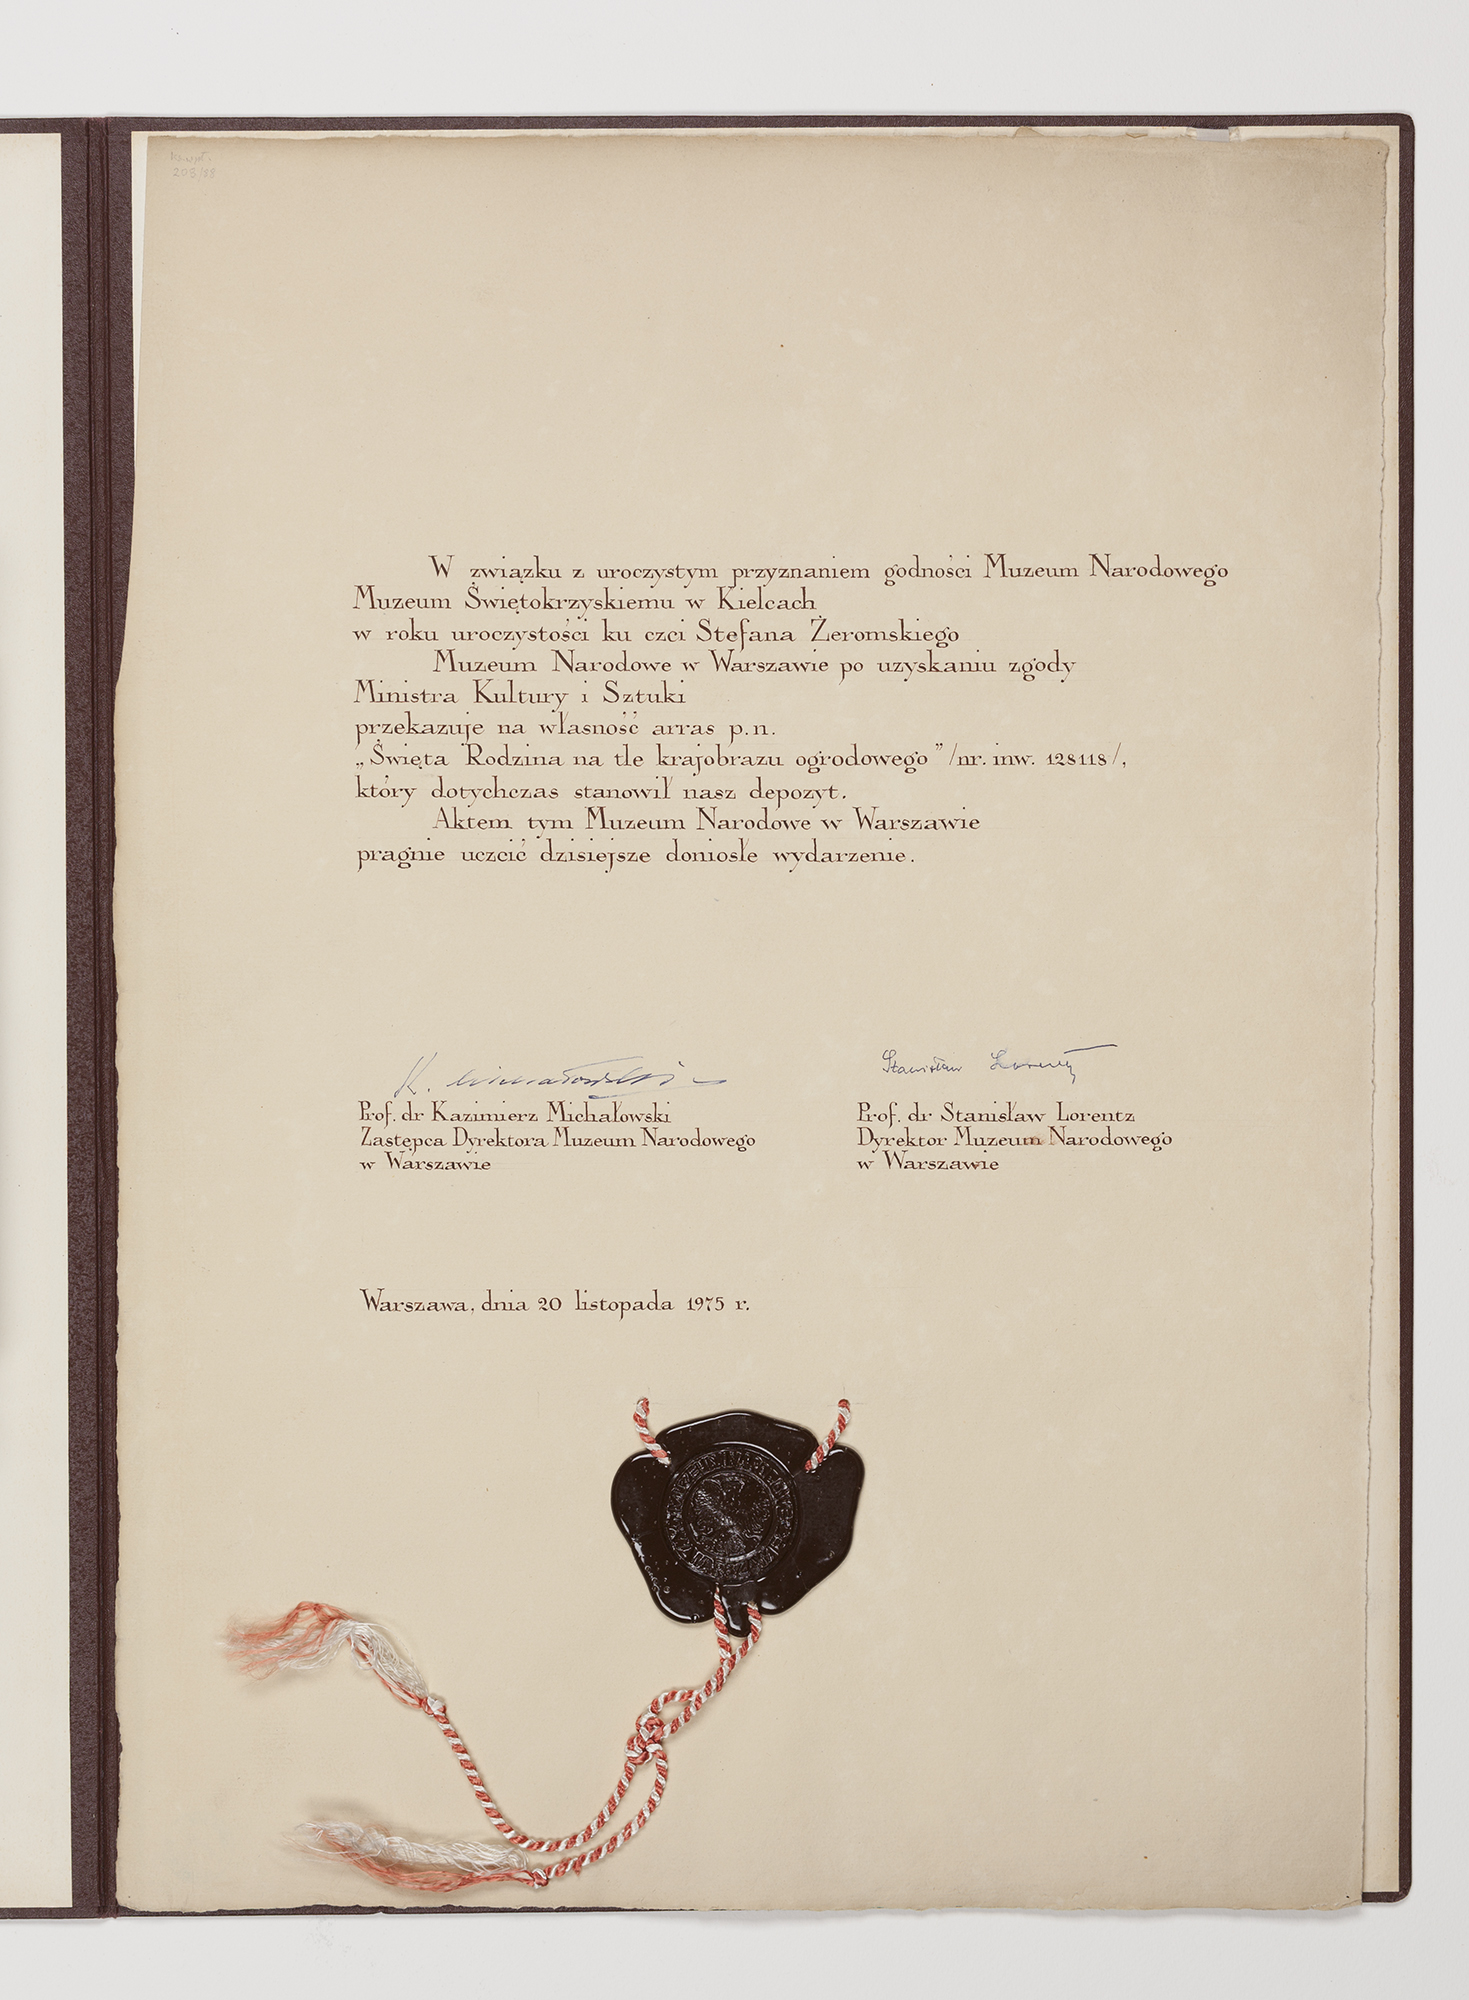 203/88
W związku z uroczystym przyznaniem godności Muzeum Narodowego
Muzeum Świętokrzyskiemu w Kielcach
w roku uroczystości ku czci Stefana Żeromskiego
Muzeum Narodowe w Warszawie po uzyskaniu zgody
Ministra Kultury i Sztuki
przekazuje na własność arras p.n.
„Święta Rodzina na tle krajobrazu ogrodowego” /nr. inw. 128118/,
który dotychczas stanowił nasz depozyt.
Aktem tym Muzeum Narodowe w Warszawie
pragnie uczcić dzisiejsze doniosłe wydarzenie.
K. Michałowski
Prof. dr Kazimierz Michałowski
Zastępca Dyrektora Muzeum Narodowego
w Warszawie
Stanisław Lorentz
Prof. dr Stanisław Lorentz
Dyrektor Muzeum Narodowego
w Warszawie
Warszawa, dnia 20 listopada 1975 r.